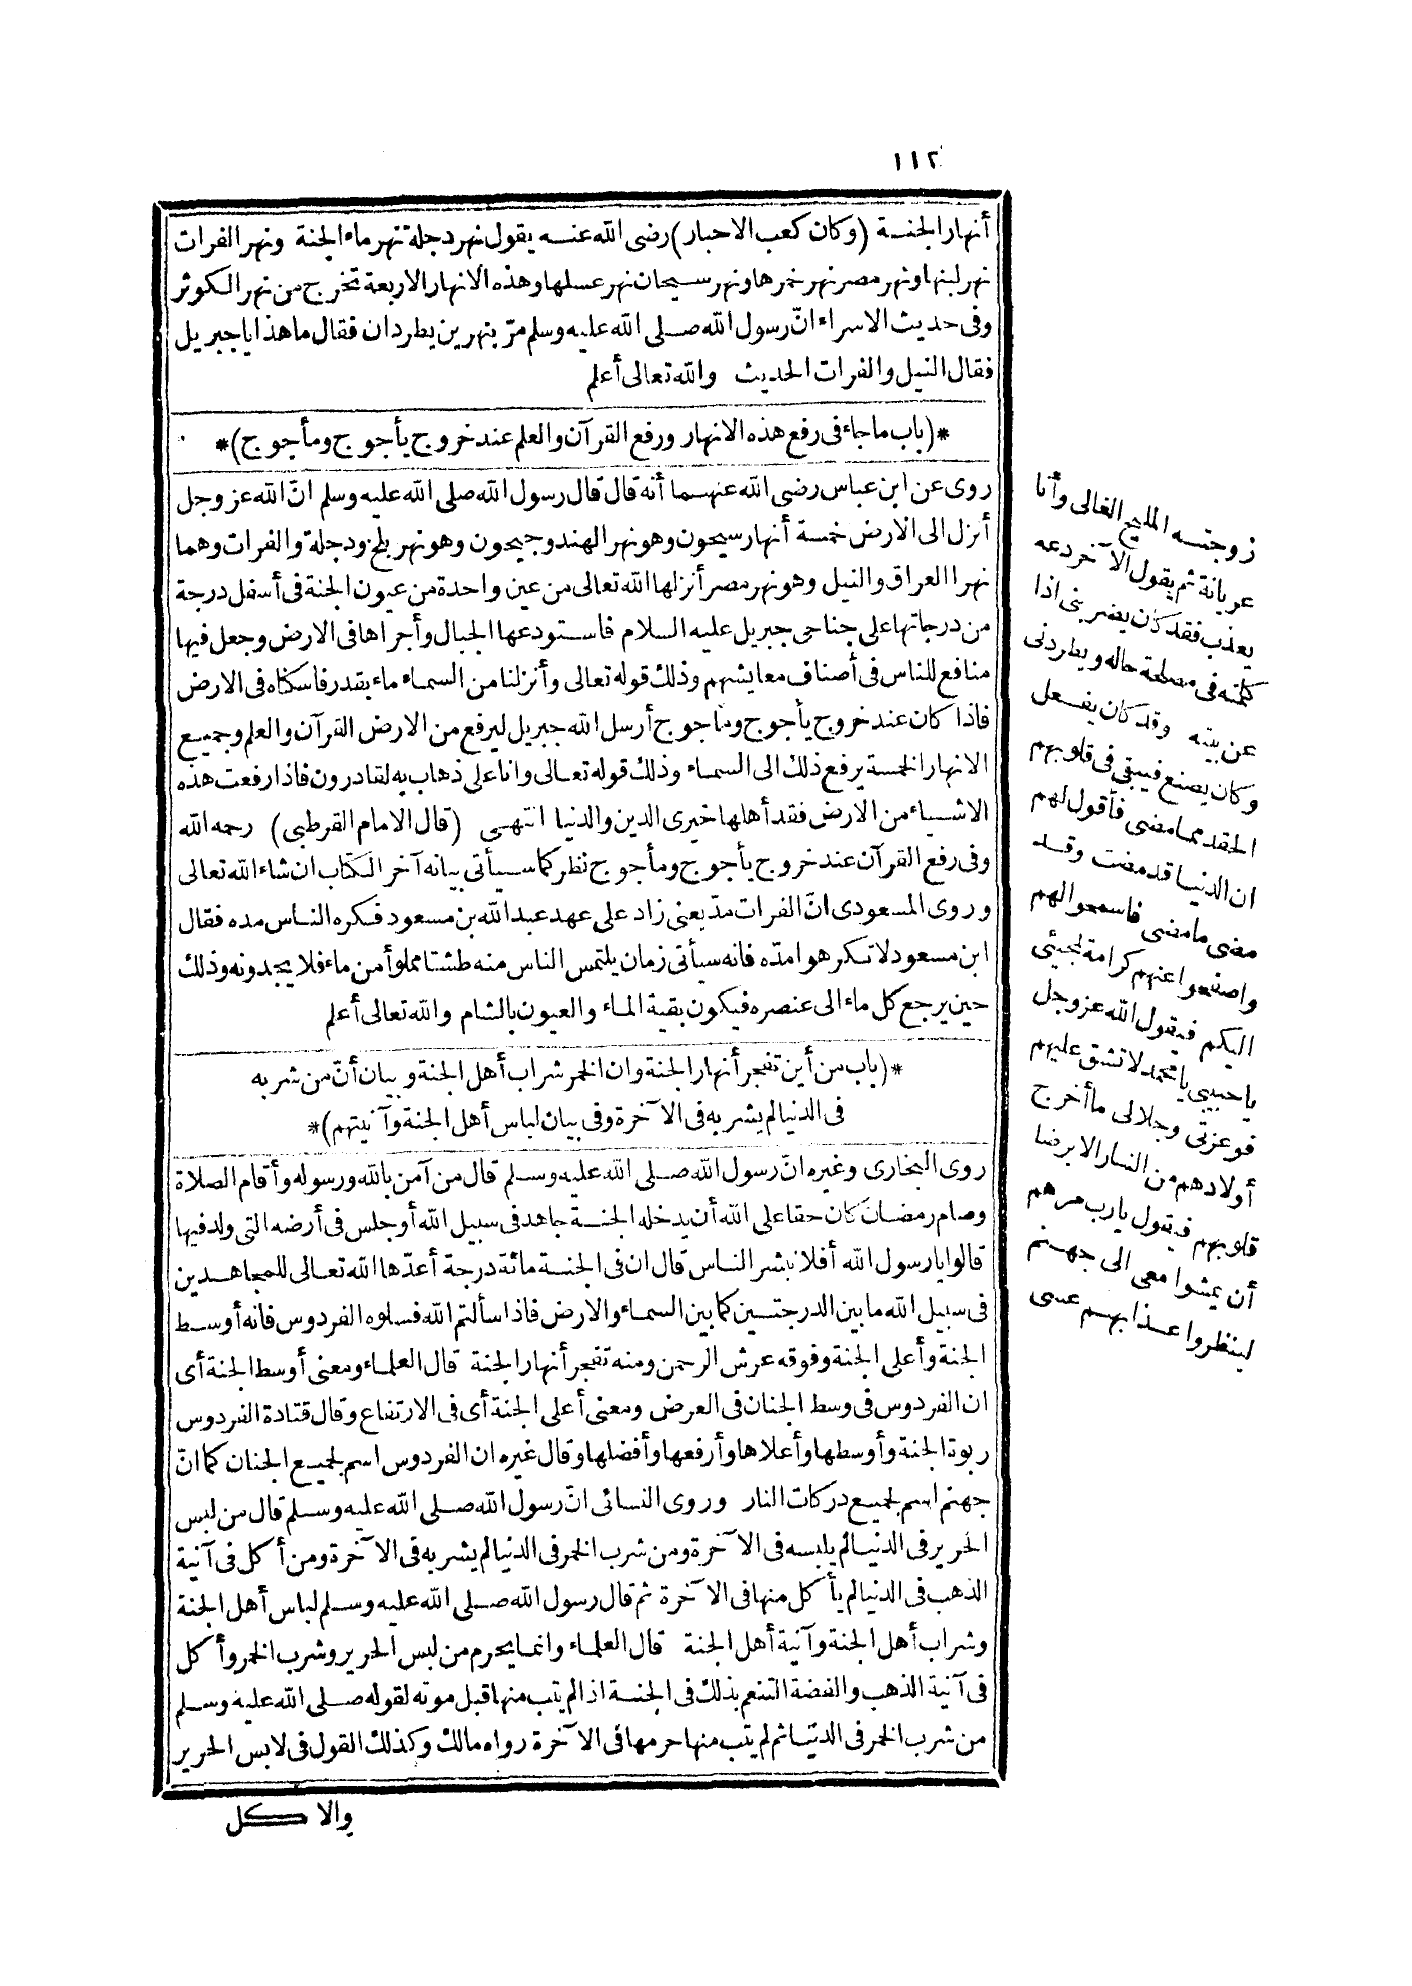 ١١٢
أنهار الجنة (وكان كعب الاحبار) رضى الله عنه يقول نهر دجلة نهر ماء الجنة ونهر الفرات
نهر لبنها ونهر مصر نهر خمرها ونهر سيحان نهر عسلها وهذه الانهار الاربعة تخرج من نهر الكوثر
وفى حديث الاسراء انّ رسول الله صلى الله عليه وسلم مرّ بنهرين يطردان فقال ما هذا يا جبريل
فقال النيل والفرات الحديث والله تعالى أعلم
*(باب ما جاء فى رفع هذه الانهار ورفع القرآن والعلم عند خروج يأجوج ومأجوج)*
روى عن ابن عباس رضى الله عنهما أنه قال قال رسول الله صلى الله عليه وسلم انّ الله عز وجل
أنزل الى الارض خمسة أنهار سيحون وهو نهر الهند وجيحون وهو نهر بلخ ودجلة والفرات وهما
نهرا العراق والنيل وهو نهر مصر أنزلها الله تعالى من عين واحدة من عيون الجنة فى أسفل درجة
من درجاتها على جناحى جبريل عليه السلام فاستودعها الجبال وأجراها فى الارض وجعل فيها
منافع للناس فى أصناف معايشهم وذلك قوله تعالى وأنزلنا من السماء ماء بقدر فاسكناه فى الارض
فاذا كان عند خروج يأجوج ومأجوج أرسل الله جبريل ليرفع من الارض القرآن والعلم وجميع
الانهار الخمسة يرفع ذلك الى السماء وذلك قوله تعالى وانا على ذهاب به لقادرون فاذا رفعت هذه
الاشياء من الارض فقد أهلها خيرى الدين والدنيا انتهى (قال الامام القرطبى) رحمه الله
وفى رفع القرآن عند خروج يأجوج ومأجوج نظر كما سيأتى بيانه آخر الكتاب ان شاء الله تعالى
وروى المسعودى انّ الفرات مدّ يعنى زاد على عهد عبد الله بن مسعود فكره الناس مده فقال
ابن مسعود لا تكرهوا مدّه فانه سيأتى زمان يلتمس الناس منه طشتا مملوأ من ماء فلا يجدونه وذلك
حين يرجع كل ماء الى عنصره فيكون بقية الماء والعيون بالشام والله تعالى أعلم
*(باب من أين تفجر أنهار الجنة وان الخمر شراب أهل الجنة وبيان أنّ من شربه
فى الدنيا لم يشربه فى الآخرة وفى بيان لباس أهل الجنة وآنيتهم)*
روى البخارى وغيره انّ رسول الله صلى الله عليه وسلم قال من آمن بالله ورسوله وأقام الصلاة
وصام رمضان كان حقا على الله أن يدخله الجنة جاهد فى سبيل الله أو جلس فى أرضه التى ولد فيها
قالوا يا رسول الله أفلا نبشر الناس قال ان فى الجنة مائة درجة أعدّها الله تعالى للمجاهدين
فى سبيل الله ما بين الدرجتين كما بين السماء والارض فاذا سألتم الله فسلوه الفردوس فانه أوسط
الجنة وأعلى الجنة وفوقه عرش الرحمن ومنه تفجر أنهار الجنة قال العلماء ومعنى أوسط الجنة أى
ان الفردوس فى وسط الجنان فى العرض ومعنى أعلى الجنة أى فى الارتفاع وقال قتادة الفردوس
ربوة الجنة وأوسطها وأعلاها وأرفعها وأفضلها وقال غيره ان الفردوس اسم لجميع الجنان كما انّ
جهنم اسم لجميع دركات النار وروى النسائى انّ رسول الله صلى الله عليه وسلم قال من لبس
الحرير فى الدنيا لم يلبسه فى الآخرة ومن شرب الخمر فى الدنيا لم يشربه فى الآخرة ومن أكل فى آنية
الذهب فى الدنيا لم يأكل منها فى الآخرة ثم قال رسول الله صلى الله عليه وسلم لباس أهل الجنة
وشراب أهل الجنة وآنية أهل الجنة قال العلماء وانما يحرم من لبس الحرير وشرب الخمر وأكل
فى آنية الذهب والفضة التنعم بذلك فى الجنة اذا لم يتب منها قبل موته لقوله صلى الله عليه وسلم
من شرب الخمر فى الدنيا ثم لم يتب منها حرمها فى الآخرة رواه مالك وكذلك القول فى لابس الحرير
والاكل
زوجته المليح الغالى وأنا
عريانة ثم يقول الآخر دعه
يعذب فقد كان يضربنى اذا
كلمته فى مصلحة حاله ويطردنى
عن بيته وقد كان يفعل
وكان يصنع فيبقى فى قلوبهم
الحقد مما مضى فأقول لهم
ان الدنيا قد مضت وقد
مضى ما مضى فاسمحوا لهم
واصفحوا عنهم كرامة لمجيئى
اليكم فيقول الله عز وجل
يا حبيبى يا محمد لا تشق عليهم
فوعزتى وجلالى ما أخرج
أولادهم من النار الا برضا
قلوبهم فيقول يا رب مرهم
أن يمشوا معى الى جهنم
لينظروا عذابهم عسى